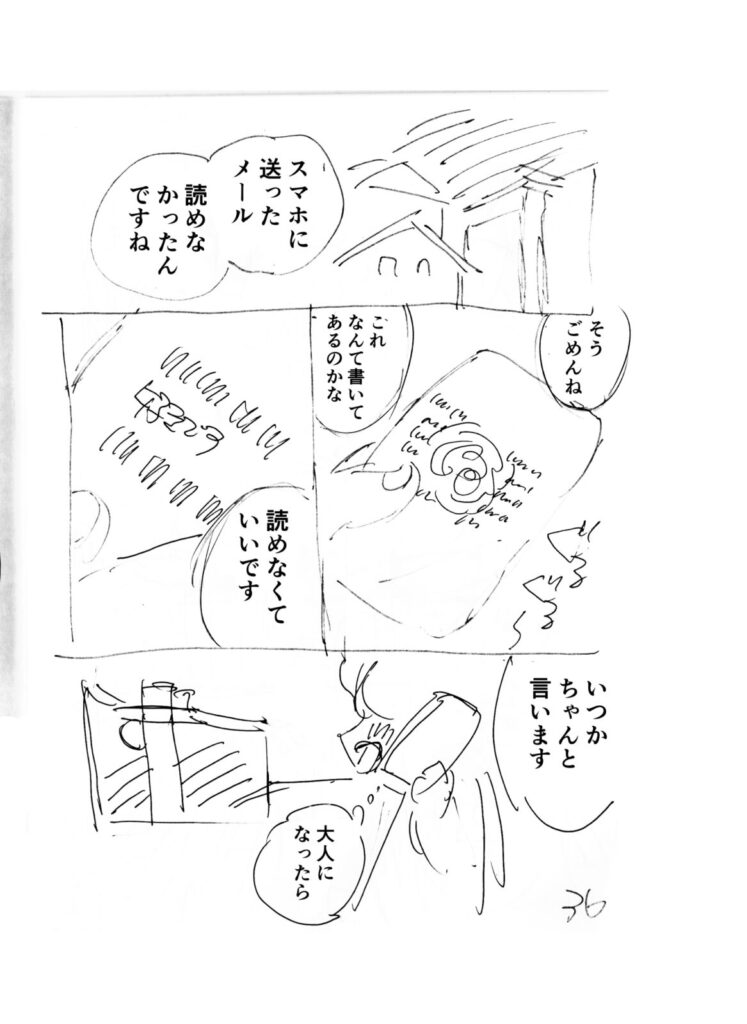 スマホに
送った
メール
読めな
かったん
ですね
そう
ごめんね
これ
なんて書いて
あるのかな
読めなくて
いいです
いつか
ちゃんと
言います
大人に
なったら
36